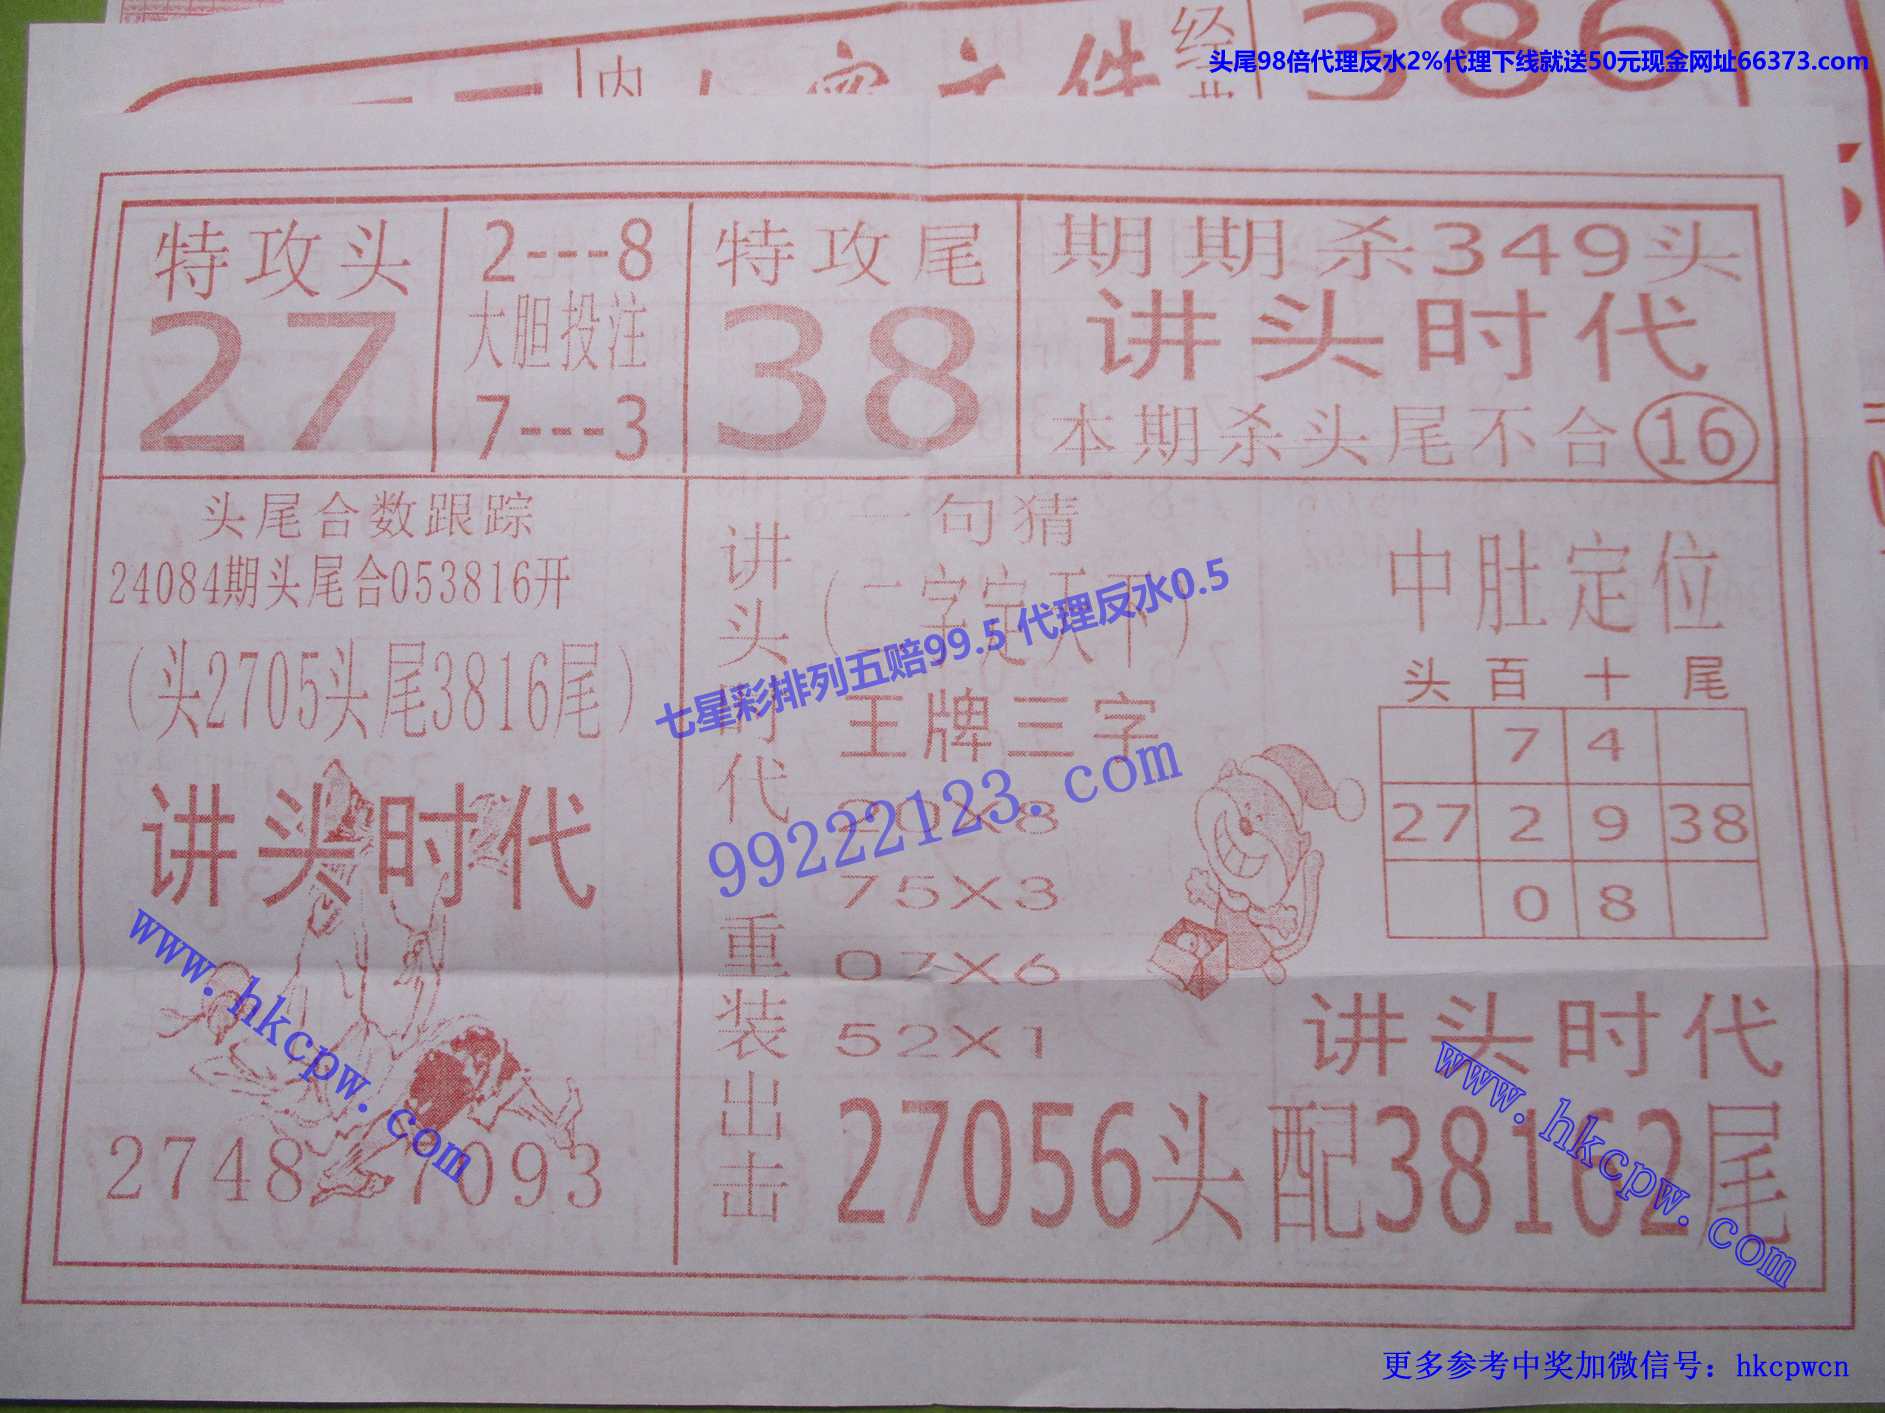 内
经
386
头尾98倍代理反水2%代理下线就送50元现金网址66373.com
特攻头
27
2---8
大胆投注
7---3
特攻尾
38
期期杀349头
讲头时代
本期杀头尾不合16
头尾合数跟踪
24084期头尾合053816开
（头2705头尾3816尾）
讲头时代
www.hkcpw.com
2748 7093
讲头时代重装出击
一句猜
（二字定天下）
七星彩排列五赔99.5 代理反水0.5
王牌三字
99222123.com
20X8
75X3
07X6
52X1
中肚定位
头 百 十 尾
7 4
27 2 9 38
0 8
讲头时代
27056头配38162尾
www.hkcpw.com
更多参考中奖加微信号：hkcpwcn